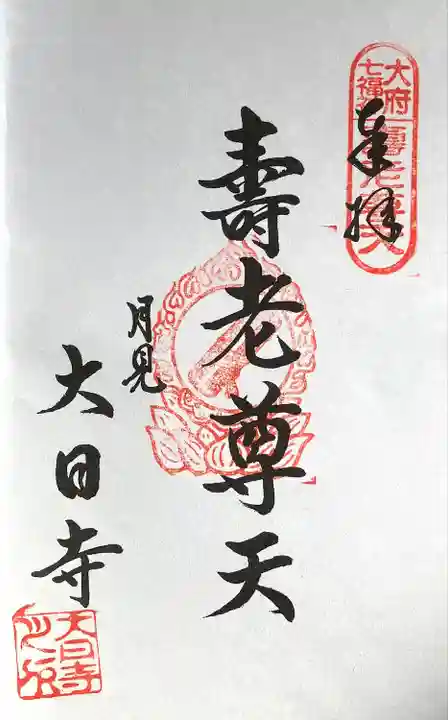 大府
七福
壽老尊天
奉拝
壽老尊天
月見
大日寺
大日寺